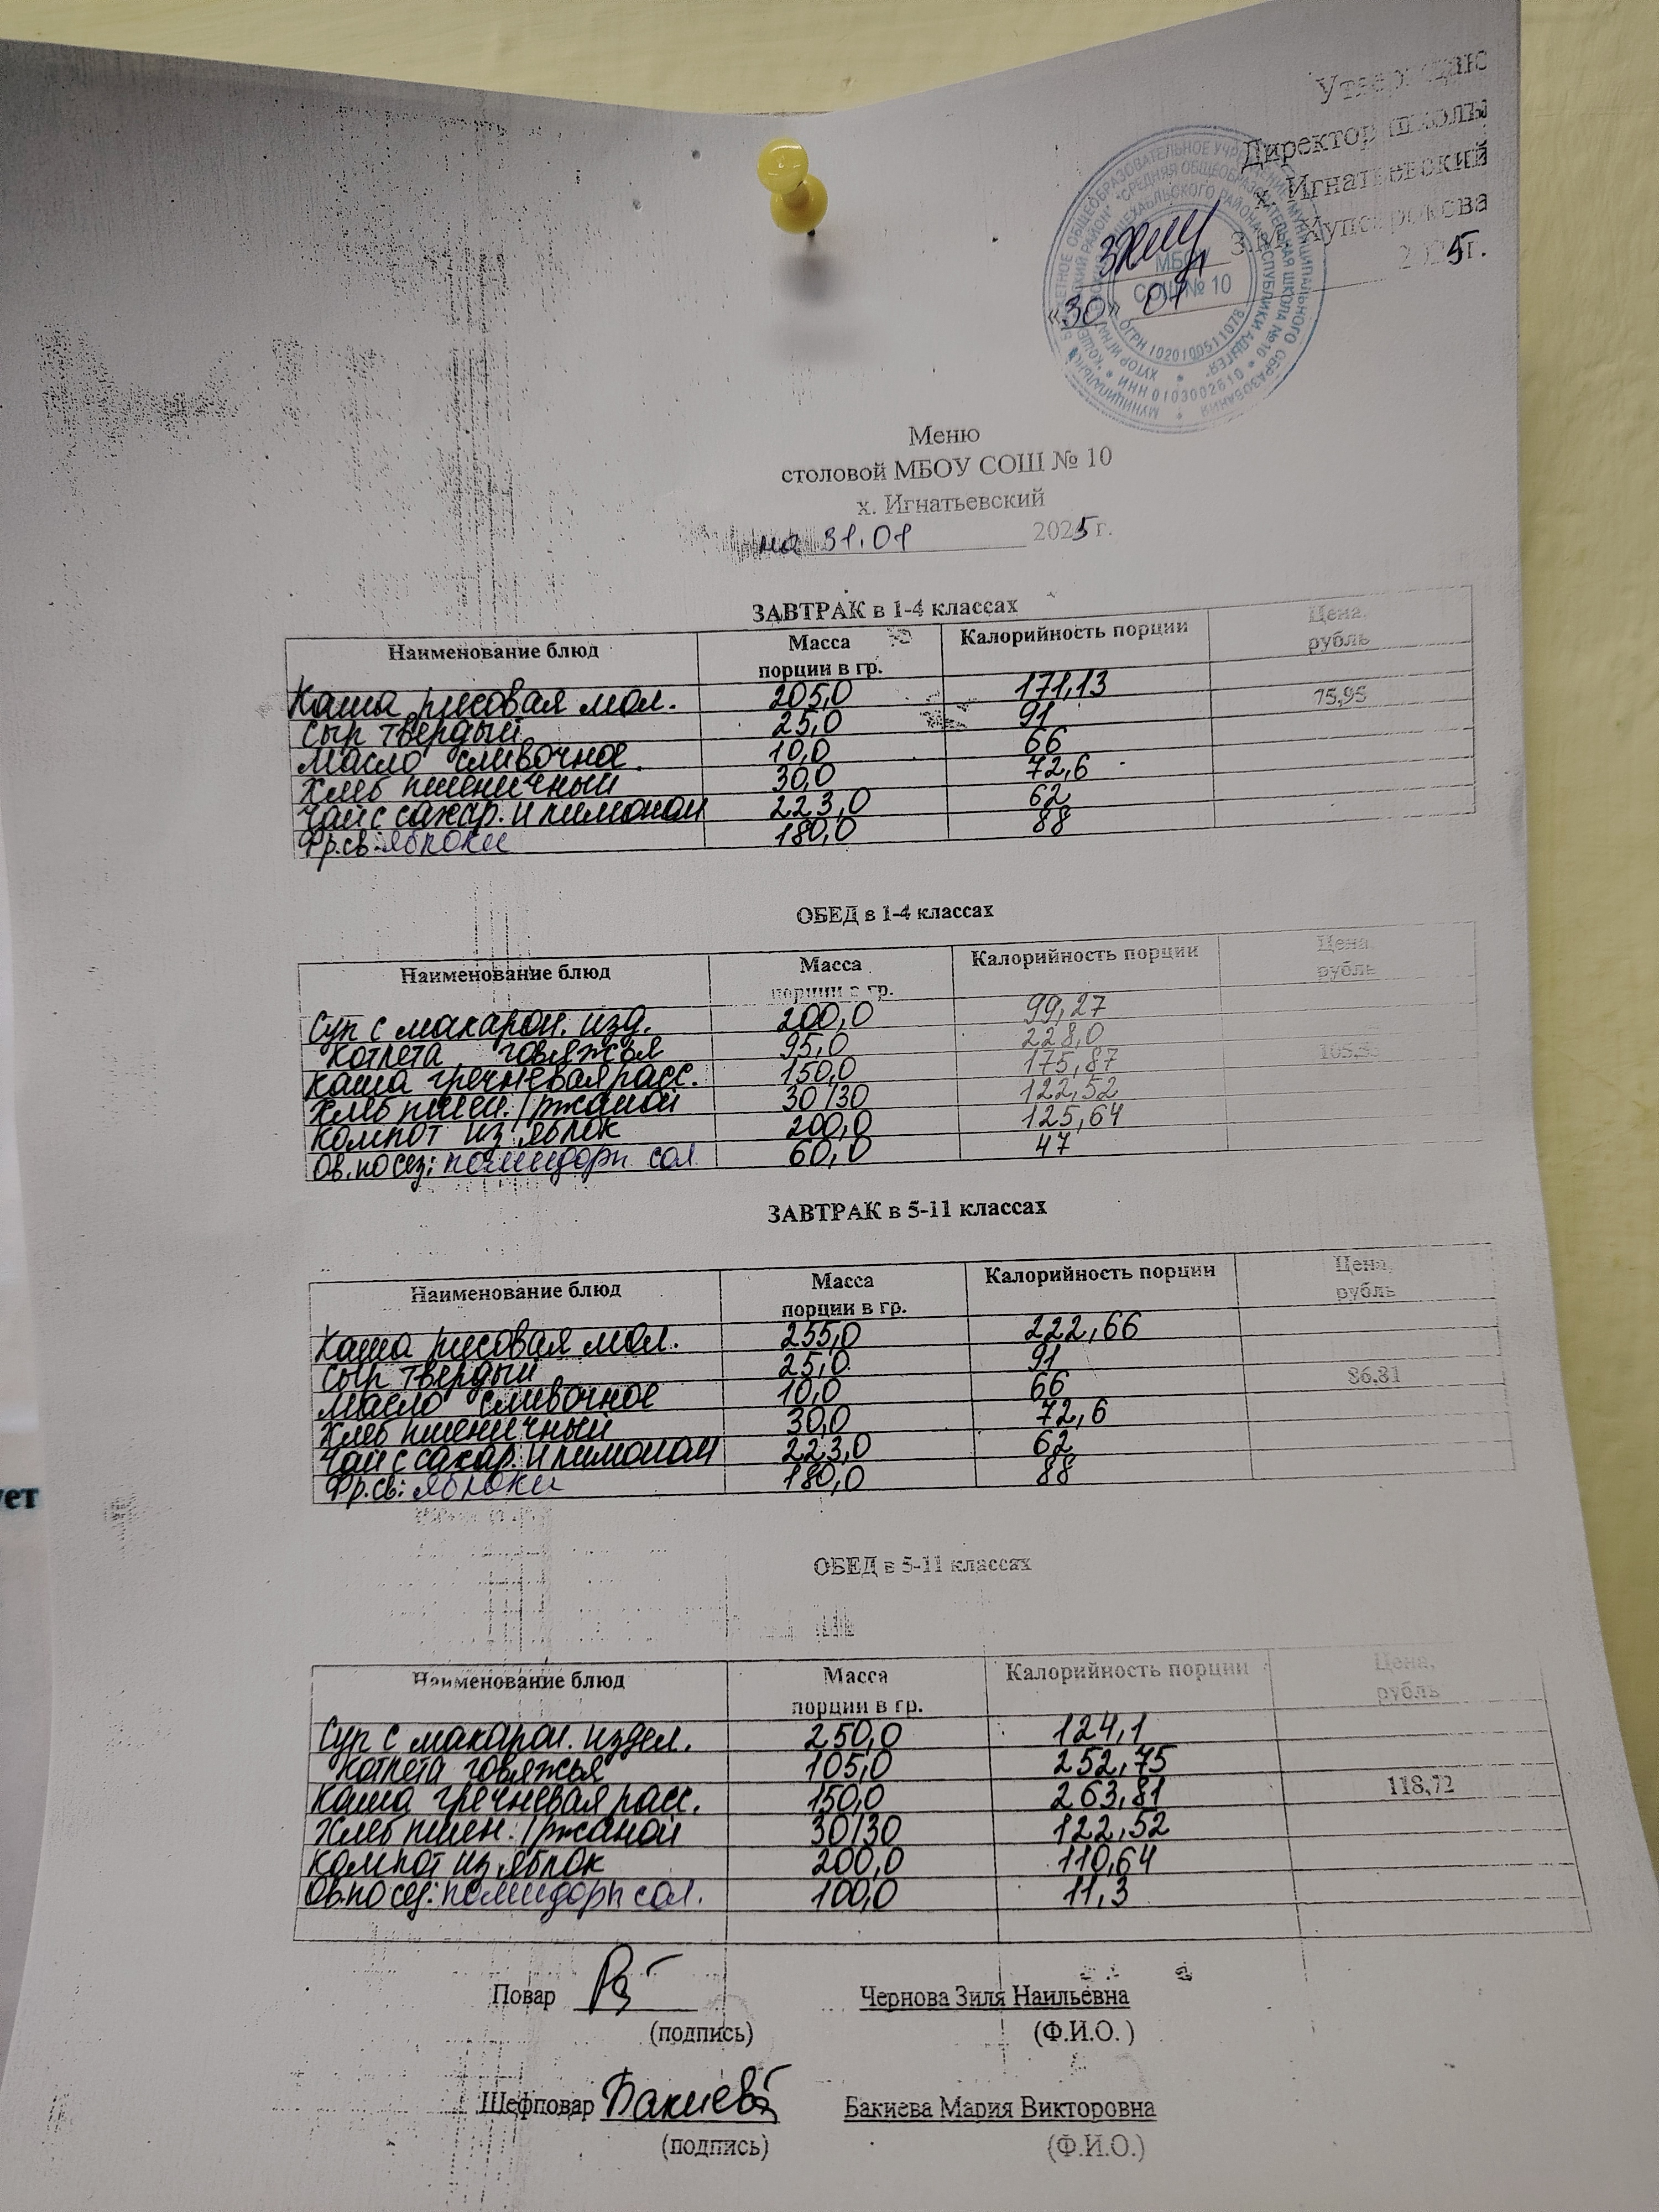 Утверждаю
Директор школы
х. Игнатьевский
«30» 01 2025г.
МБОУ
СОШ № 10
ОГРН 1020100511078
ИНН 0103002610
Меню
столовой МБОУ СОШ № 10
х. Игнатьевский
на 31.01 2025 г.
ЗАВТРАК в 1-4 классах
Наименование блюд Масса порции в гр. Калорийность порции Цена, рубль
Каша рисовая мол. 205,0 171,13 75,95
Сыр твердый 25,0 91
Масло сливочное 10,0 66
Хлеб пшеничный 30,0 72,6
Чай с сахар. и лимоном 223,0 62
Фр.св: яблоки 180,0 88
ОБЕД в 1-4 классах
Наименование блюд Масса порции в гр. Калорийность порции Цена, рубль
Суп с макарон. изд. 200,0 99,27
Котлета говяжья 95,0 228,0
Каша гречневая расс. 150,0 175,87
Хлеб пшен. / ржаной 30/30 122,52
Компот из яблок 200,0 125,64
Ов.по сез: помидоры сол. 60,0 47
ЗАВТРАК в 5-11 классах
Наименование блюд Масса порции в гр. Калорийность порции Цена, рубль
Каша рисовая мол. 255,0 222,66
Сыр твердый 25,0 91
Масло сливочное 10,0 66 86,81
Хлеб пшеничный 30,0 72,6
Чай с сахар. и лимоном 223,0 62
Фр.св: яблоки 180,0 88
ОБЕД в 5-11 классах
Наименование блюд Масса порции в гр. Калорийность порции Цена, рубль
Суп с макарон. издел. 250,0 124,1
Котлета говяжья 105,0 252,75
Каша гречневая расс. 150,0 263,81 118,72
Хлеб пшен. / ржаной 30/30 122,52
Компот из яблок 200,0 110,64
Ов.по сез: помидоры сол. 100,0 11,3
Повар Чернова Зиля Наильевна
(подпись) (Ф.И.О. )
Шефповар Бакиева Бакиева Мария Викторовна
(подпись) (Ф.И.О.)
ует